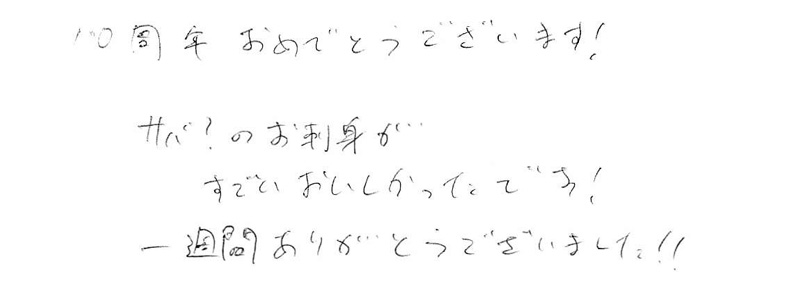 10周年おめでとうございます!
サバ?のお刺身が
すごいおいしかったです!
一週間ありがとうございました!!